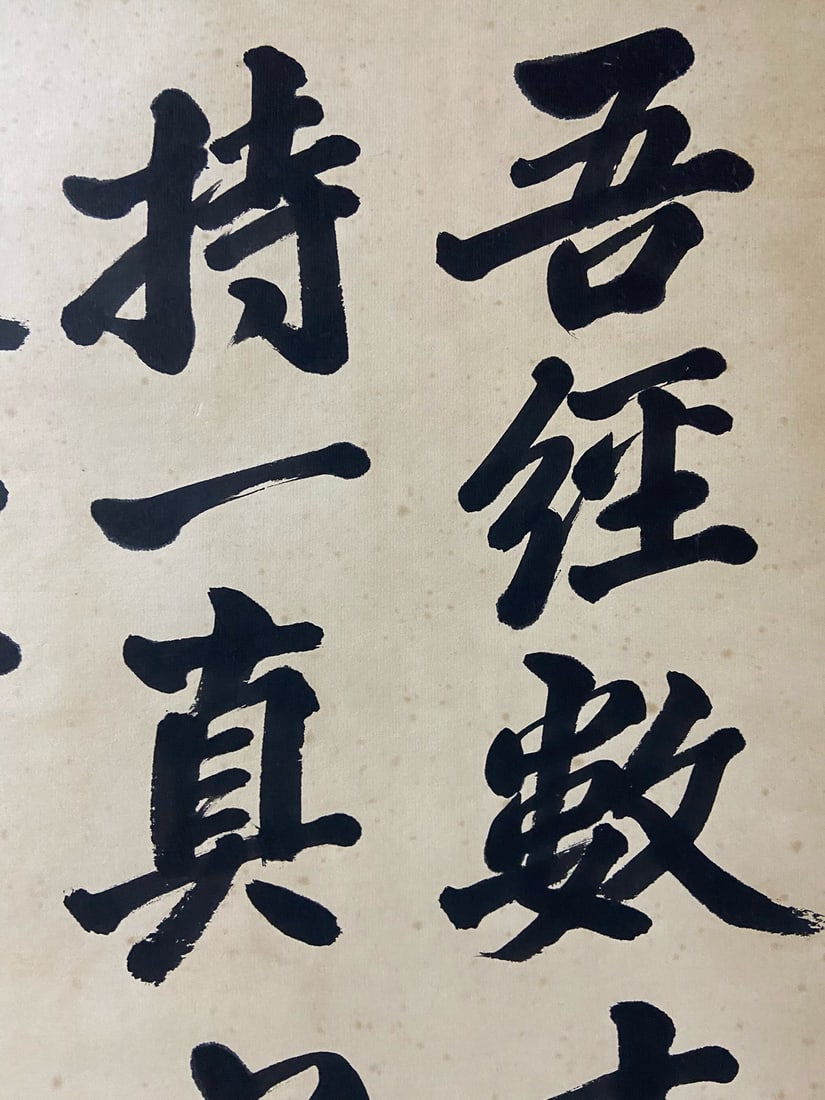 吾經數
持一真